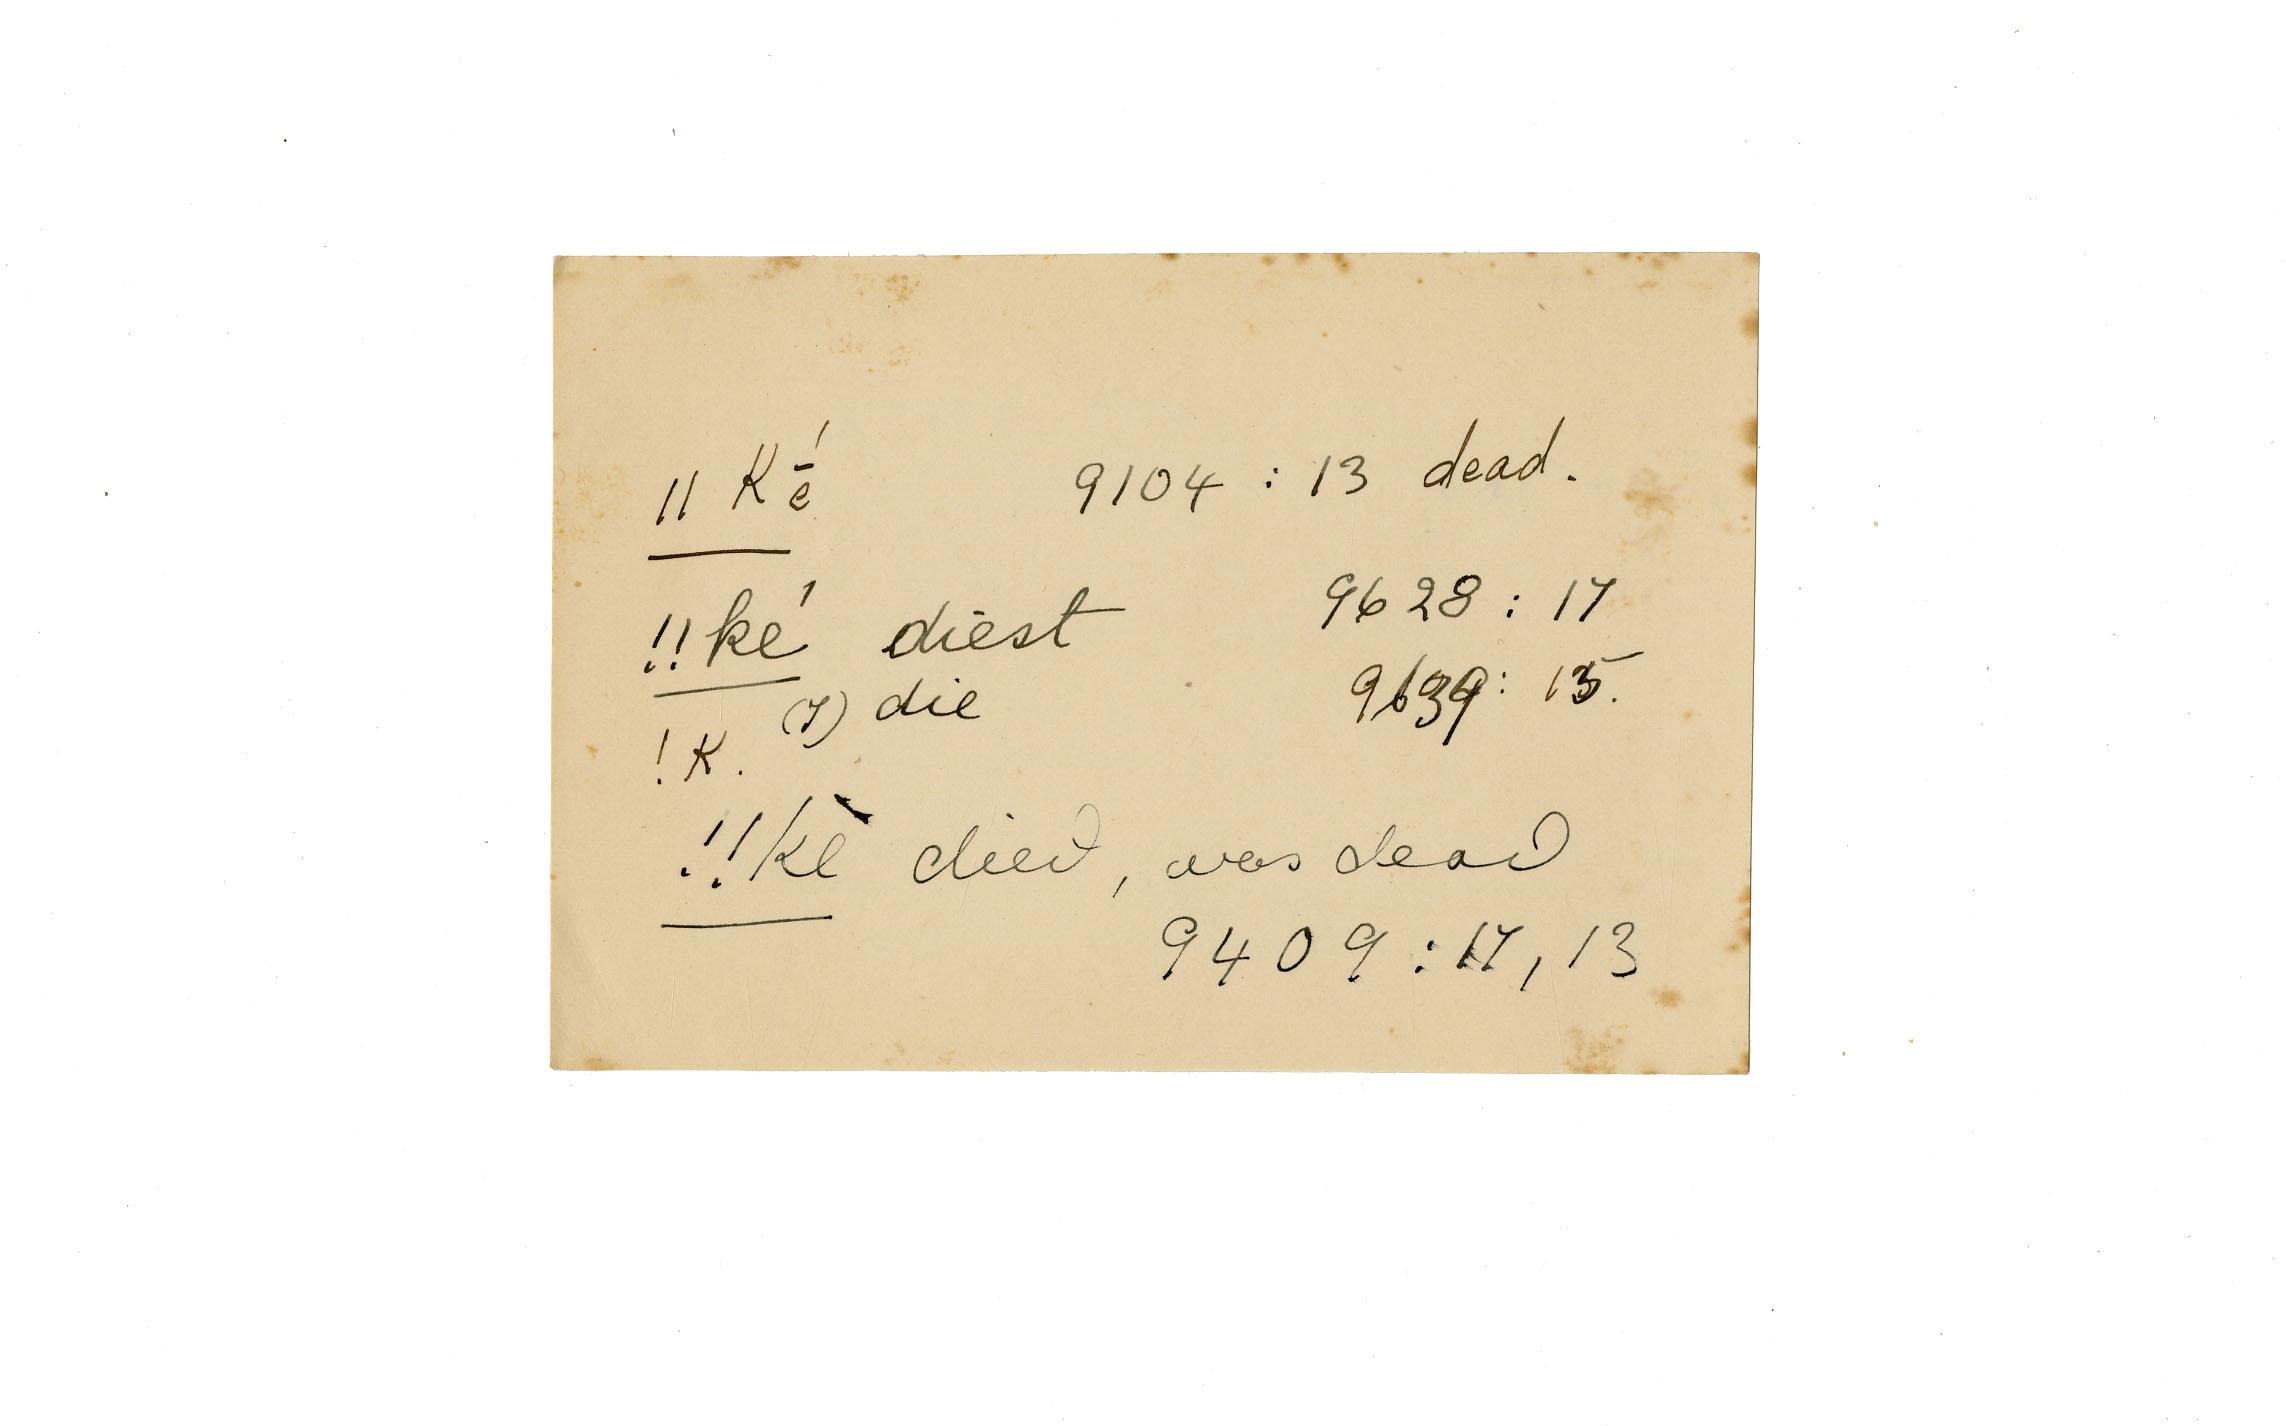 ǁ Kḗ 9104 : 13 dead.
!!ké diest 9628 : 17
(I) die 9639 : 15.
! K.
!!kè died, was dead
9409 : 17, 13